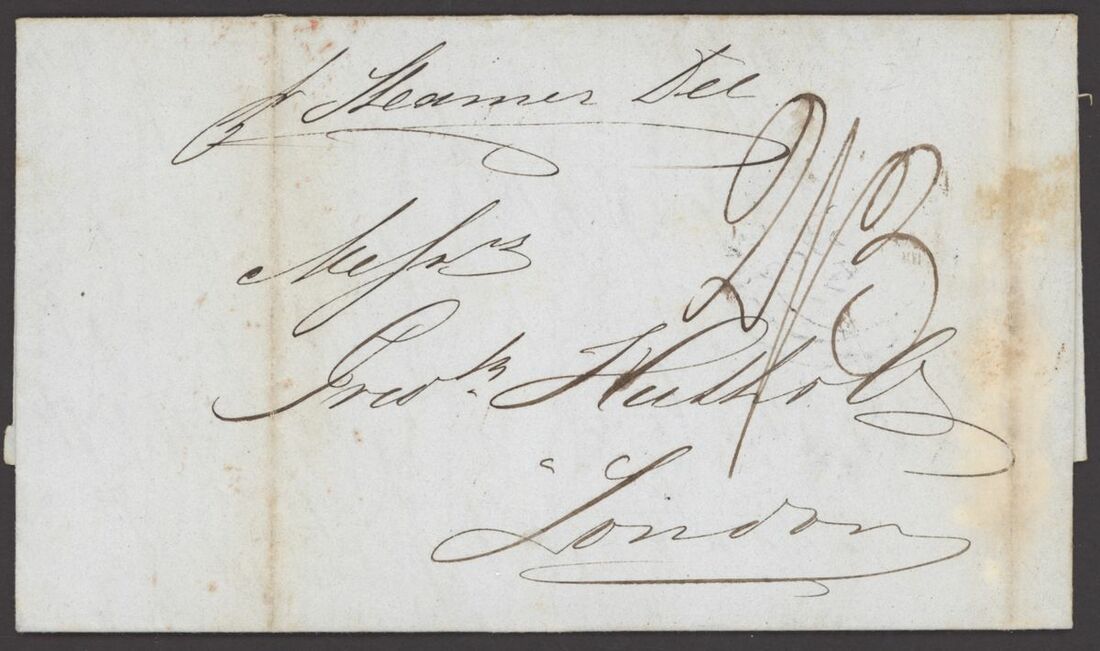 pr Steamer Dee
2/3
Messrs
Fredk Huth & Co
London